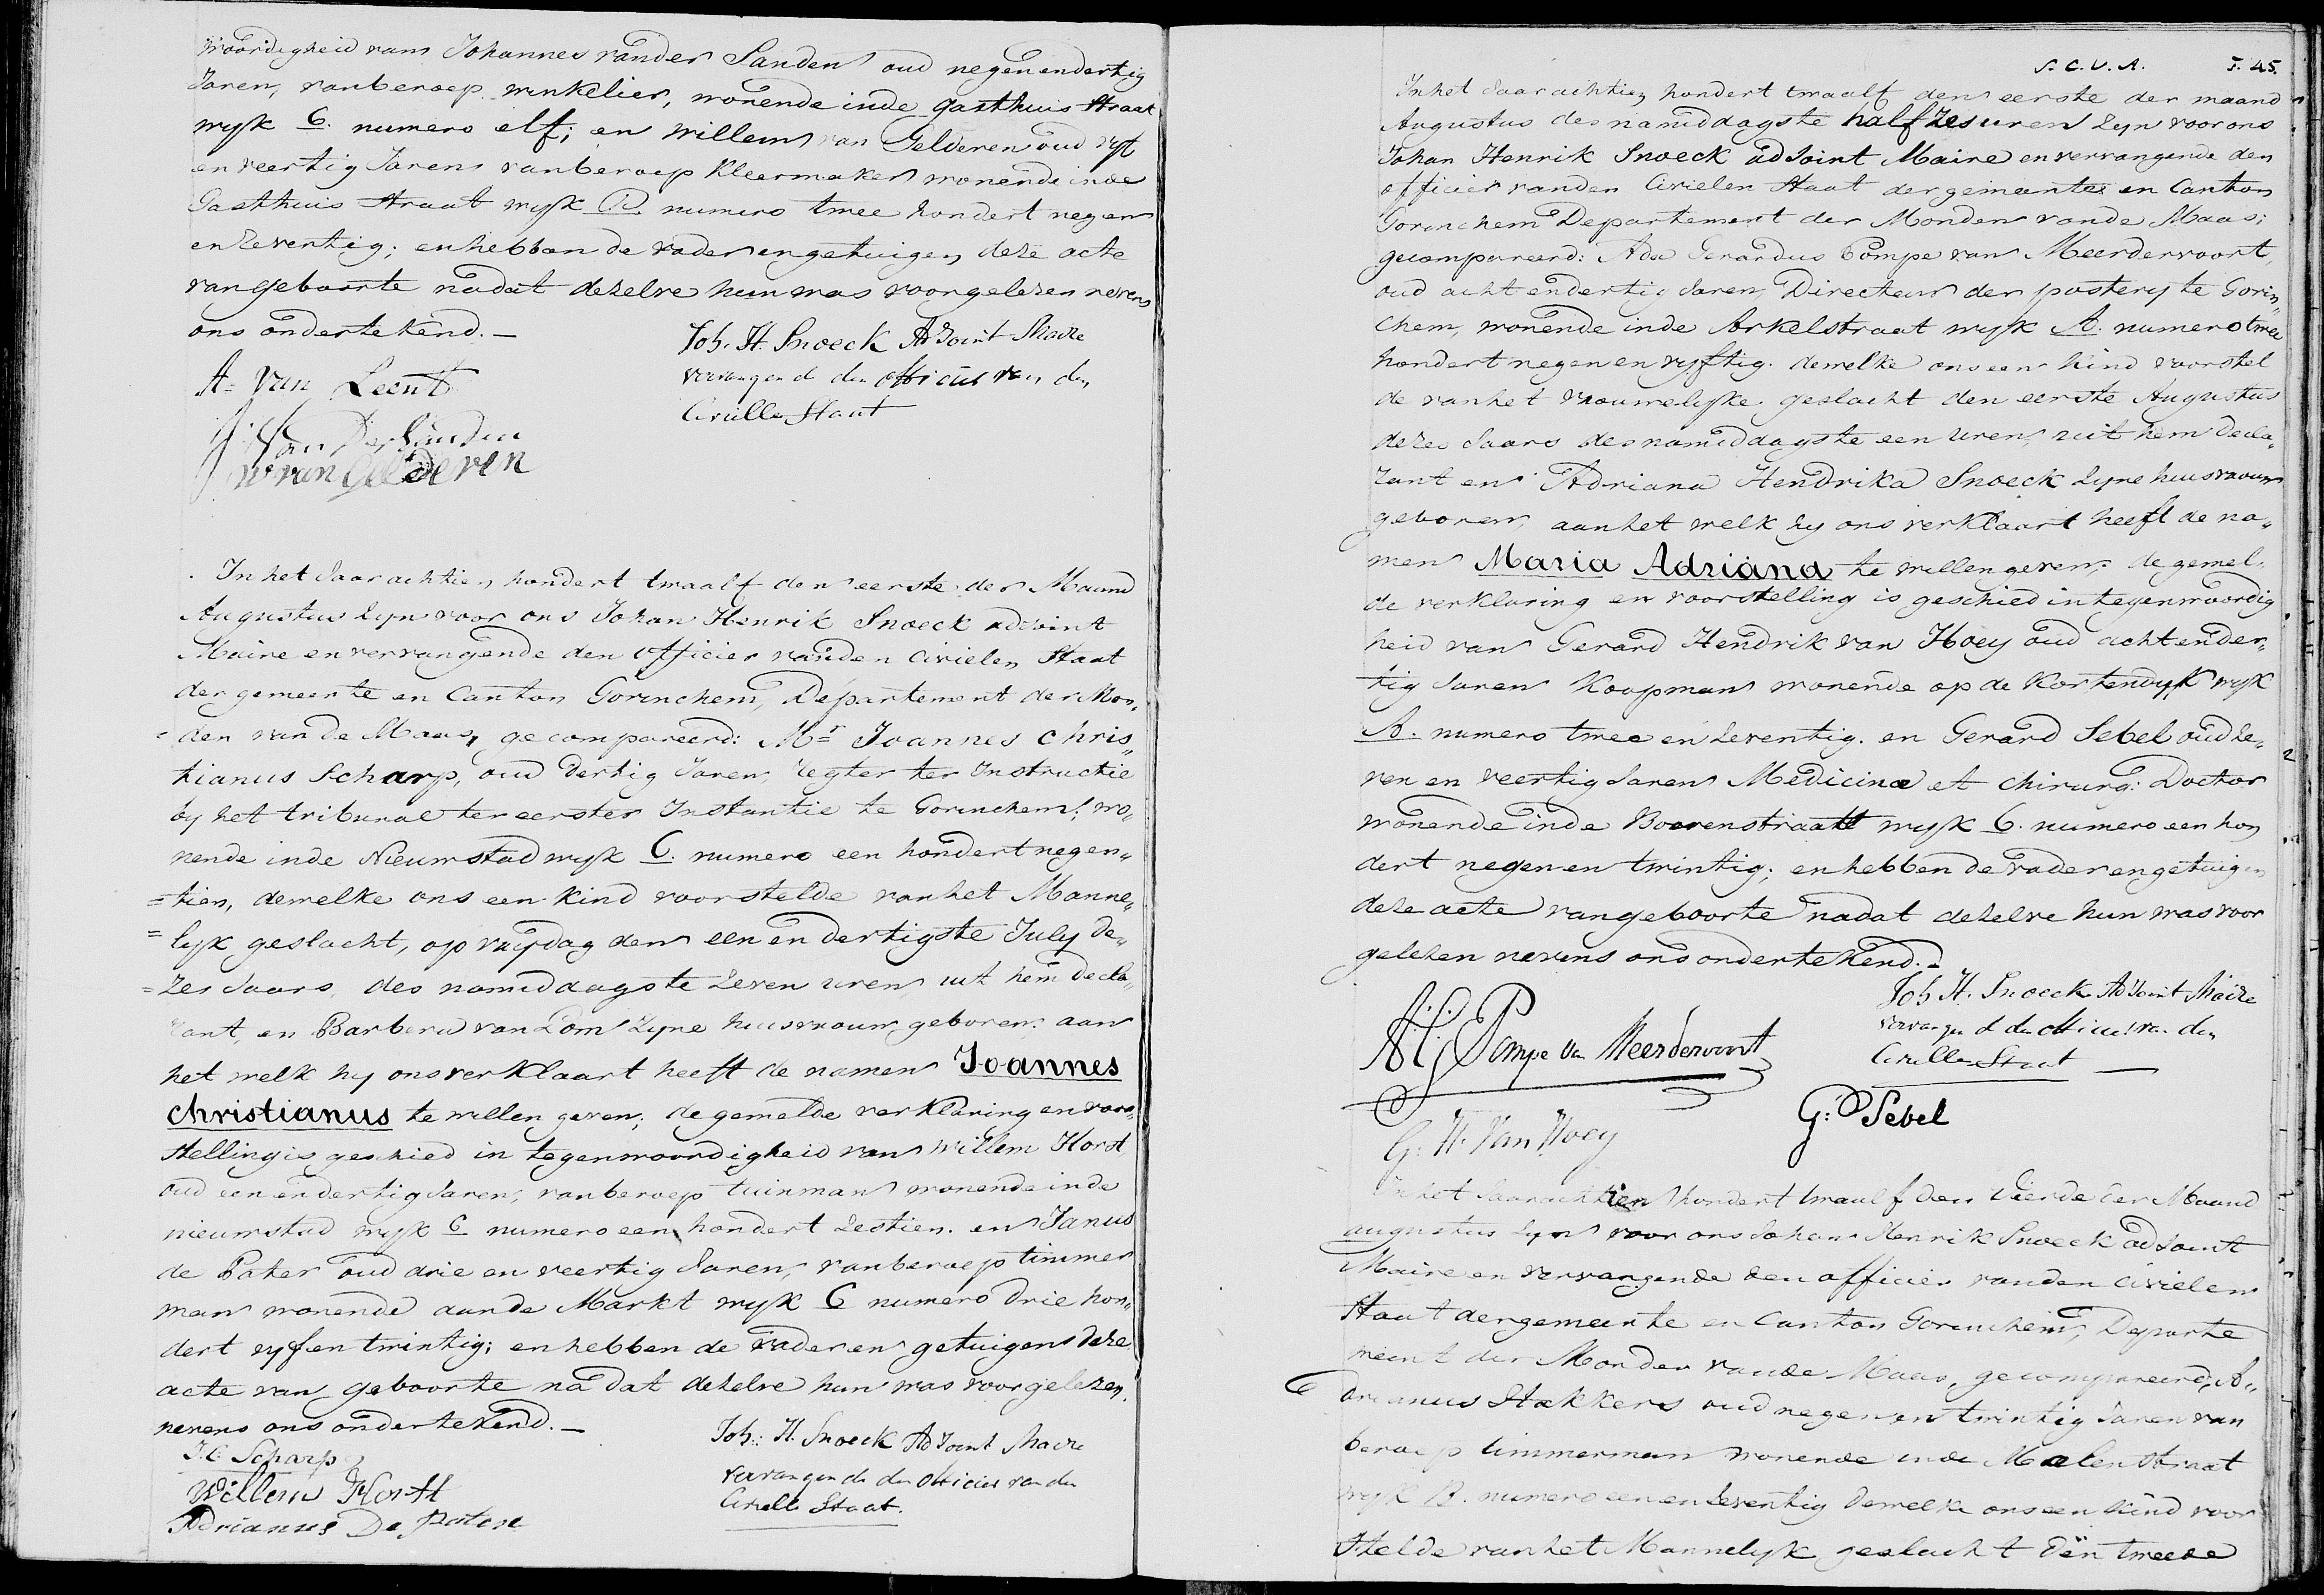 woordigheid van Johannes vander Sanden oud negenendertig
Jaren, van beroep winkelier, wonende inde gasthuis straat
wyk C. numero elf; en Willem van Gelderen oud vyf
en veertig Jaren van beroep Kleermaker wonende inde
Gasthuis straat wyk D numero twee hondert negen
en Zeventig; en hebben de vader en getuigen deze acte
van geboorte nadat dezelve hun was voorgelezen nevens
ons ondertekend. —
Joh. H. Snoeck Adjoint Maire
vervangende den officier van den
Civille Staat
A. Van Leent
J Van Der Sanden
W van Gelderen
In het Jaar achtien hondert twaalf den eerste der Maand
Augustus Zyn voor ons Johan Henrik Snoeck adjoint
Maire en vervangende den officier vanden Civielen Staat
der gemeente en Canton Gorinchem, Departement der Mon„
den van de Maas, gecompareerd: Mr Joannes Chris„
tianus Scharp, oud dertig Jaren, regter ter Instructie
by het tribunal ter eerster Instantie te Gorinchem; wo„
nende inde Nieuwstad wyk C. numero een hondert negen„
=tien, dewelke ons een kind voorstelde van het Manne„
=lyk geslacht, op vrydag den een en dertigste July de„
=zes Jaars, des namiddags te Zeven uren, uit hem decla„
rant, en Barbera van Lom Zyne huisvrouw, geboren: aan
het welk hy ons verklaart heeft de namen Joannes
Christianus te willen geven; de gemelde verklaring en voor„
stelling is geschied in tegenwoordigheid van Willem Horst
oud een en dertig Jaren, van beroep tuinman wonende inde
nieuwstad wyk C numero een hondert Zestien. en Janus
de Pater oud drie en veertig Jaren, van beroep timmer
man wonende aan de Markt wyk C numero drie hon„
dert vyf en twintig; en hebben de vader en getuigen deze
acte van geboorte na dat dezelve hun was voorgelezen
nevens ons ondertekend. —
Joh: H. Snoeck Adjoint Maire
vervangende den officier van den
Civille Staat.
J. C Scharp
Willem Horst
Adrianus De Pater
S. C. V. A. F. 45.
In het Jaar achtien hondert twaalf den eerste der maand
Augustus des namiddags te half Zes uren Zyn voor ons
Johan Henrik Snoeck adjoint Maire en vervangende den
officier vanden Civielen Staat der gemeente en Canton
Gorinchem Departement der Monden vande Maas;
gecompareerd: Ada Gerardus Pompe van Meerdervoort,
oud acht en dertig Jaren, Directeur der postery te Gorin„
chem, wonende inde Arkelstraat wyk A. numero twee
hondert negen en vyftig. dewelke ons een kind voorstel
de van het vrouwelyke geslacht den eerste Augustus
dezes Jaars des namiddags te een uren, uit hem decla„
rant en Adriana Hendrika Snoeck Zyne huisvrouw
geboren, aan het welk hy ons verklaart heeft de na„
men Maria Adriana te willen geven; de gemel„
de verklaring en voorstelling is geschied in tegenwoordig
heid van Gerard Hendrik van Hoey oud acht en der„
tig Jaren Koopman wonende op de Kortendyk wyk
A. numero twee en Zeventig. en Gerard Sebel oud Ze„
ven en veertig Jaren Medicinæ et Chirurg: Doctor
wonende inde Boerenstraat wyk C. numero een hon
dert negen en twintig; en hebben de vader en getuigen
deze acte van geboorte nadat dezelve hun was voor
gelezen nevens ons ondertekend. —
Joh H. Snoeck Adjoint Maire
vervangende den officier van den
Civille Staat
A: G: Pompe van Meerdervoort
G: Sebel
G. H. Van Hoey
In het Jaar achtien hondert twaalf den vierde der Maand
augustus Zyn voor ons Johan Henrik Snoeck adjoint
Maire en vervangende den officier vanden Civielen
Staat der gemeente en Canton Gorinchem, Departe
ment der Monden van de Maas, gecompareerd, A„
drianus Stekkers oud negen en twintig Jaren van
beroep timmerman wonende inde Molenstraat
wyk B. numero een en Zeventig dewelke ons een kind voor
stelde van het Mannelyk geslacht den tweede